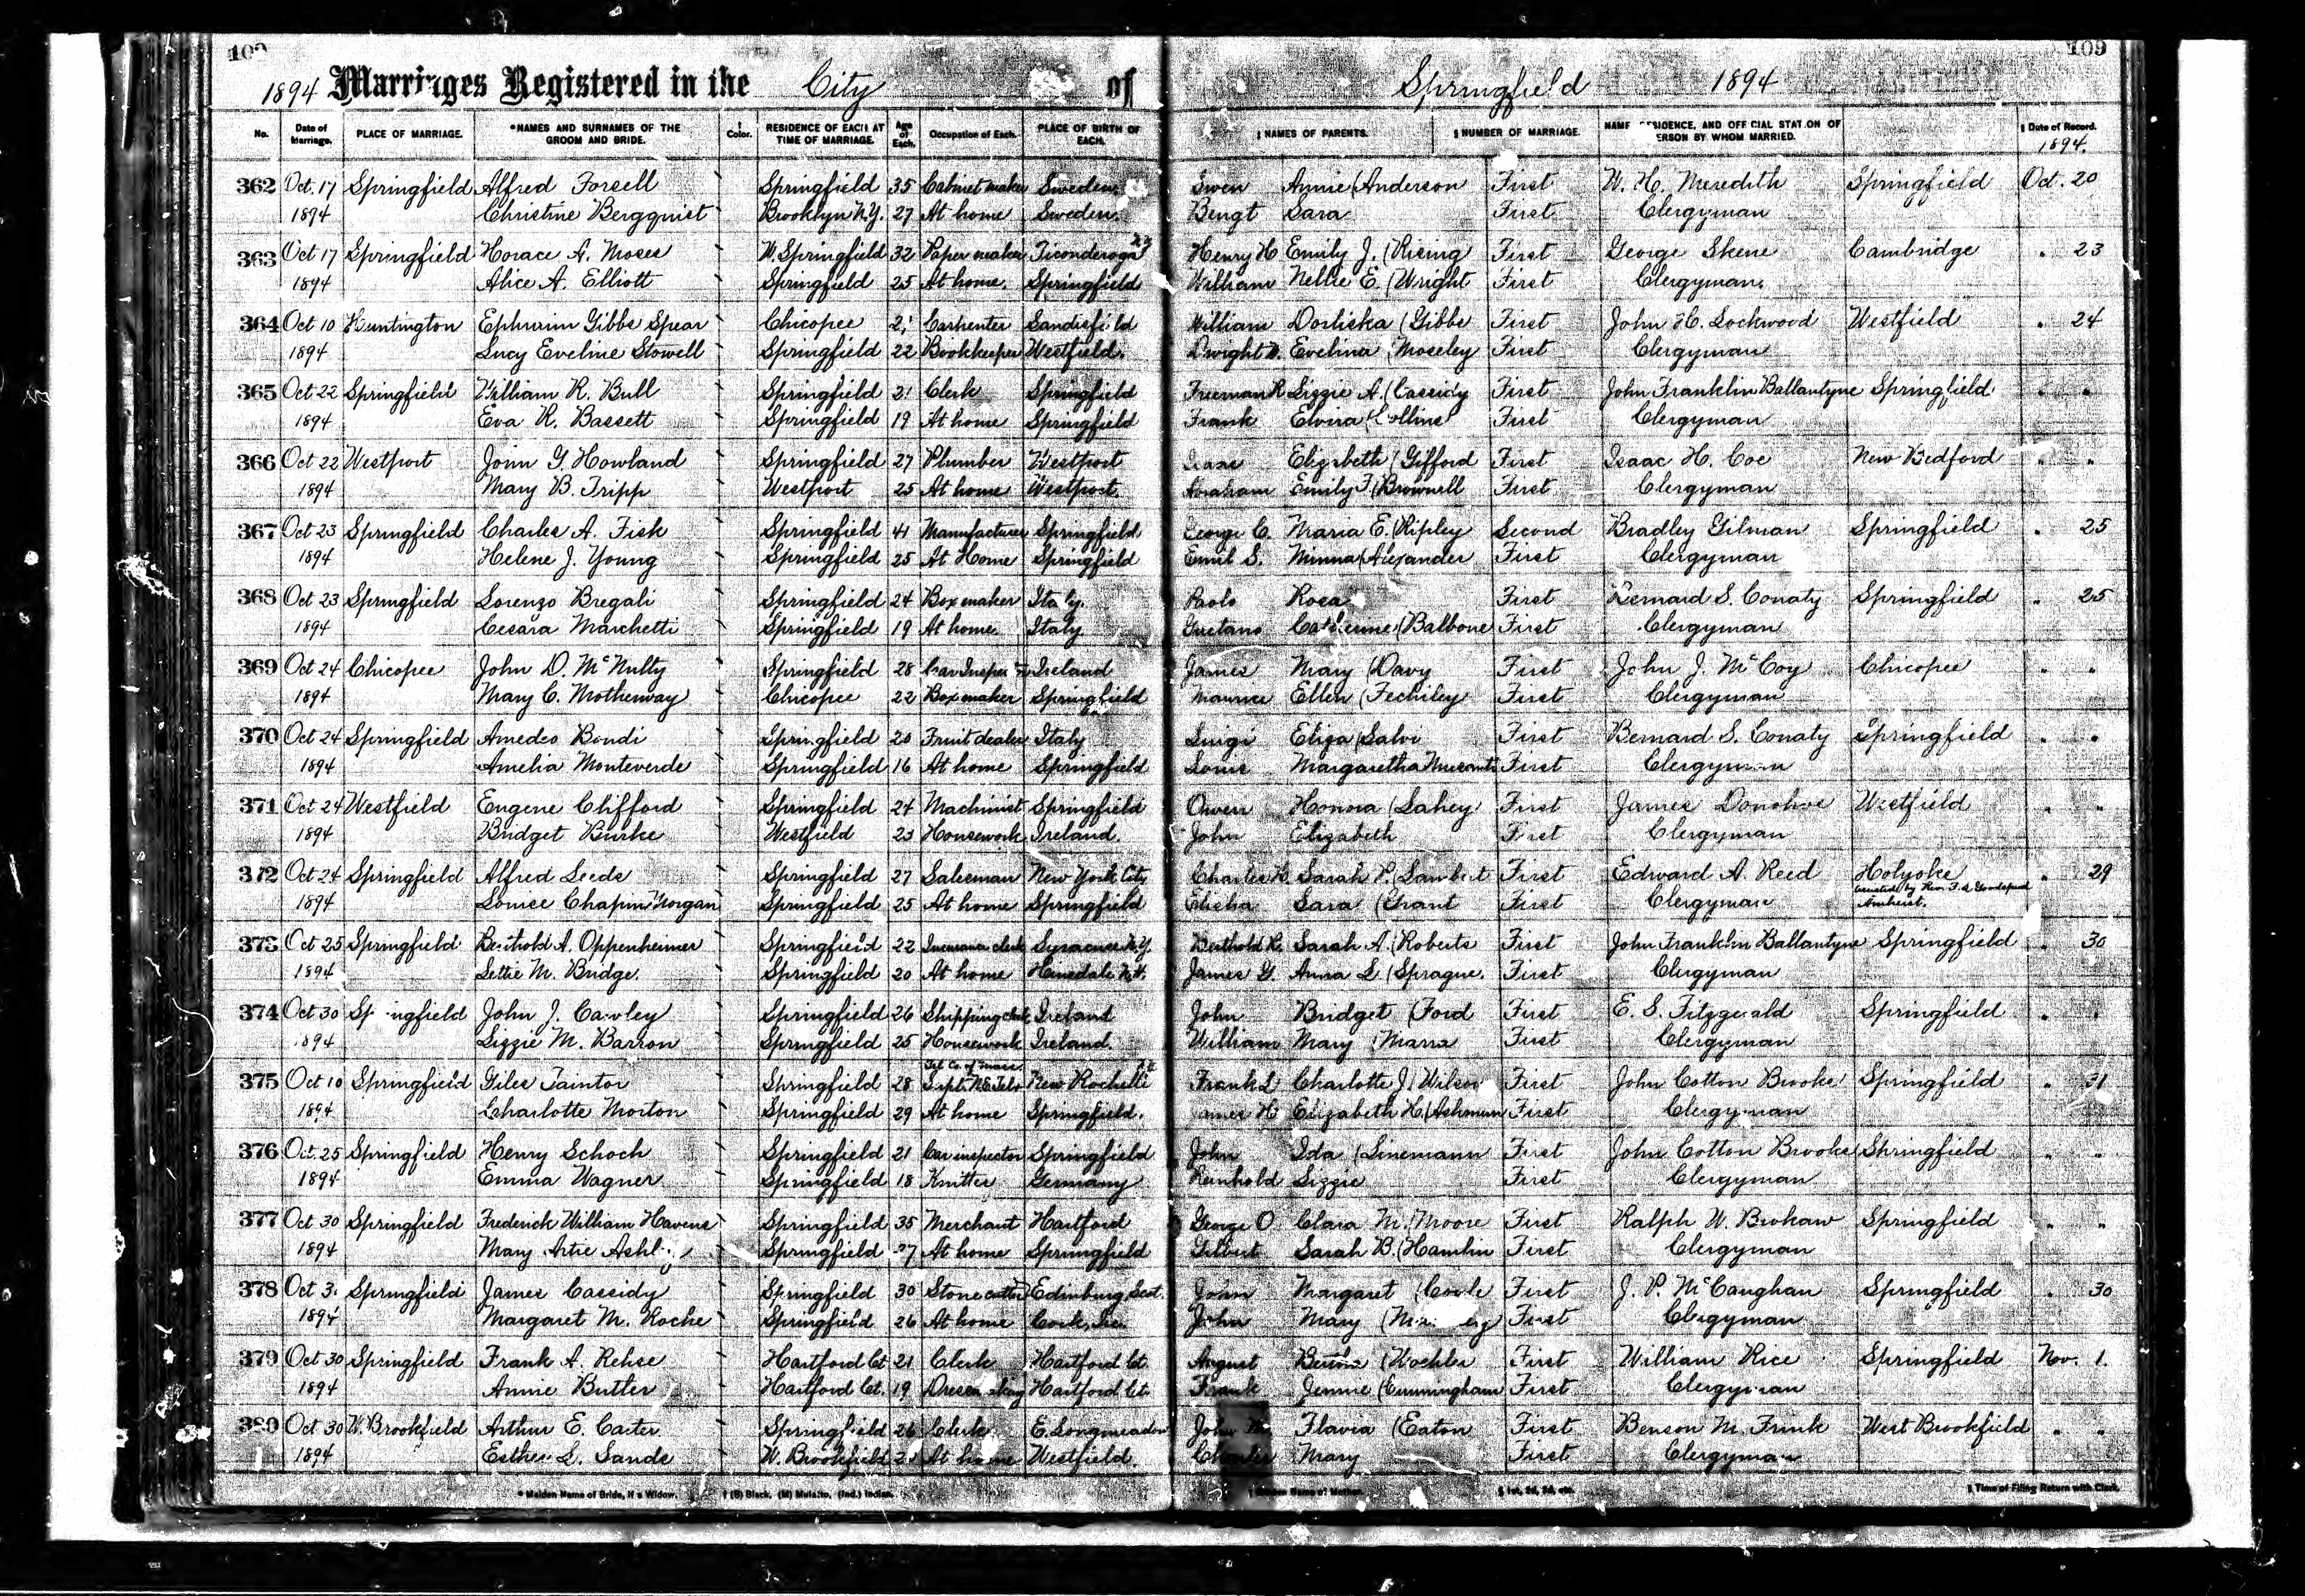 109
1894 Marriages Registered in the City of Springfield 1894
No. Date of Marriage. PLACE OF MARRIAGE. *NAMES AND SURNAMES OF THE GROOM AND BRIDE. † Color. RESIDENCE OF EACH AT TIME OF MARRIAGE. Age of Each. Occupation of Each. PLACE OF BIRTH OF EACH. ‡ NAMES OF PARENTS. § NUMBER OF MARRIAGE. RESIDENCE, AND OFFICIAL STATION OF PERSON BY WHOM MARRIED. ‖ Date of Record. 1894.
362 Oct. 17 Springfield Alfred Forsell Springfield 35 Cabinet maker Sweden Swen Annie (Anderson First W. H. Meredith Springfield Oct. 20
1894 Christine Bergquist Brooklyn N.Y. 27 At home Sweden. Bengt Sara First Clergyman
363 Oct 17 Springfield Horace A. Moses W. Springfield 32 Paper maker Ticonderoga N.Y. Henry H Emily J. (Rising First George Skene Cambridge " 23
1894 Alice A. Elliott Springfield 25 At home. Springfield William Nellie E. (Wright First Clergyman.
364 Oct 10 Huntington Ephraim Gibbs Spear Chicopee Carpenter Sandisfield William Dorliska (Gibbs First John H. Lockwood Westfield " 24
1894 Lucy Eveline Stowell Springfield 22 Bookkeeper Westfield. Dwight Evelina (Moseley First Clergyman
365 Oct 22 Springfield William R. Bull Springfield 21 Clerk Springfield Freeman R Lizzie A. (Cassidy First John Franklin Ballantyne Springfield " "
1894 Eva R. Bassett Springfield 19 At home Springfield Frank Elvira (Collins First Clergyman
366 Oct 22 Westport John G. Howland Springfield 27 Plumber Westport Isaac Elizabeth (Gifford First Isaac H. Coe New Bedford " "
1894 Mary B. Tripp Westport 25 At home Westport Abraham Emily F. (Brownell First Clergyman
367 Oct 23 Springfield Charles A. Fisk Springfield 41 Manufacturer Springfield George C. Maria E. (Ripley Second Bradley Gilman Springfield " 25
1894 Helene J. Young Springfield 25 At Home Springfield Emil S. Minna (Alexander First Clergyman
368 Oct 23 Springfield Lorenzo Bregali Springfield 24 Box maker Italy. Paolo Rosa First Bernard S. Conaty Springfield " 25
1894 Cesara Marchetti Springfield 19 At home. Italy Gaetano Catherine (Balbone First Clergyman
369 Oct 24 Chicopee John D. McNulty Springfield 28 Ireland James Mary (Davy First John J. McCoy Chicopee " "
1894 Mary C. Motherway Chicopee 22 Box maker Springfield Maurice Ellen First Clergyman
370 Oct 24 Springfield Amedeo Bondi Springfield 20 Fruit dealer Italy Luigi Eliza (Salvi First Bernard S. Conaty Springfield " "
1894 Amelia Monteverde Springfield 16 At home Springfield Louis Margaretha First Clergyman
371 Oct 24 Westfield Eugene Clifford Springfield 24 Machinist Springfield Owen Honora (Lahey First James Donohoe Westfield " "
1894 Bridget Burke Westfield 23 Housework Ireland. John Elizabeth First Clergyman
372 Oct 24 Springfield Alfred Leeds Springfield 27 Salesman New York City Charles H. Sarah P. (Lambert First Edward A Reed Holyoke " 29
1894 Louise Chapin Morgan Springfield 25 At home Springfield Elisha Sara (Grant First Clergyman assisted by Rev. Amherst.
373 Oct 25 Springfield Berthold A. Oppenheimer Springfield 22 Insurance clerk Syracuse N.Y. Berthold R. Sarah A. (Roberts First John Franklin Ballantyne Springfield " 30
1894 Lettie M. Bridge. Springfield 20 At home Hinsdale N.H. James G. Anna L. (Sprague. First Clergyman
374 Oct 30 Springfield John J. Cawley Springfield 26 Shipping clerk Ireland John Bridget (Ford First E. S. Fitzgerald Springfield " "
1894 Lizzie M. Barron Springfield 25 Housework Ireland. William Mary First Clergyman
375 Oct 10 Springfield Giles Taintor Springfield 28 New Rochelle Frank L Charlotte J. (Wilson First John Cotton Brooks Springfield " 31
1894 Charlotte Morton Springfield 29 At home Springfield. James H Elizabeth H. (Ashmun First Clergyman
376 Oct. 25 Springfield Henry Schoch Springfield 21 Car inspector Springfield John Ida (Linemann First John Cotton Brooks Springfield " "
1894 Emma Wagner Springfield 18 Knitter Germany Reinhold Lizzie First Clergyman
377 Oct 30 Springfield Frederick William Havens Springfield 35 Merchant Hartford George O. Clara M. (Moore First Ralph W. Brokaw Springfield " "
1894 Mary Springfield At home Springfield Gilbert Sarah B. (Hamlin First Clergyman
378 Oct Springfield James Cassidy Springfield 30 Stone cutter Edinburg Scot. John Margaret First J. P. McCaughan Springfield " 30
1894 Margaret M. Roche Springfield 26 At home Cork, Ire. John Mary First Clergyman
379 Oct 30 Springfield Frank A. Rehse Hartford Ct 21 Clerk Hartford Ct. August Bertha (Koehler First William Rice Springfield Nov. 1.
1894 Annie Butler Hartford Ct. 19 Dressmaking Hartford Ct. Frank Jennie (Cunningham First Clergyman
380 Oct 30 W. Brookfield Arthur E. Carter Springfield 26 Clerk E. Longmeadow John Flavia (Eaton First Benson M. Frink West Brookfield " "
1894 Esther L. Sands W. Brookfield At home Westfield. Charles Mary First Clergyman
* Maiden Name of Bride, if a Widow. † (B) Black, (M) Mulatto, (Ind.) Indian. ‡ Maiden Name of Mother. § 1st, 2d, 3d, etc. ‖ Time of Filing Return with Clerk.